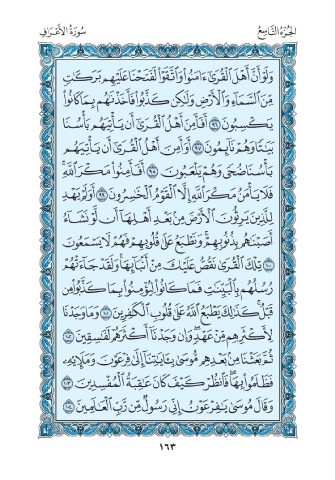 الجزء التاسع
سورة الأعراف
وَلَوْ أَنَّ أَهْلَ ٱلْقُرَىٰٓ ءَامَنُوا۟ وَٱتَّقَوْا۟ لَفَتَحْنَا عَلَيْهِم بَرَكَٰتٍ
مِّنَ ٱلسَّمَآءِ وَٱلْأَرْضِ وَلَٰكِن كَذَّبُوا۟ فَأَخَذْنَٰهُم بِمَا كَانُوا۟
يَكْسِبُونَ ٩٦ أَفَأَمِنَ أَهْلُ ٱلْقُرَىٰٓ أَن يَأْتِيَهُم بَأْسُنَا
بَيَٰتًا وَهُمْ نَآئِمُونَ ٩٧ أَوَأَمِنَ أَهْلُ ٱلْقُرَىٰٓ أَن يَأْتِيَهُم
بَأْسُنَا ضُحًى وَهُمْ يَلْعَبُونَ ٩٨ أَفَأَمِنُوا۟ مَكْرَ ٱللَّهِ
فَلَا يَأْمَنُ مَكْرَ ٱللَّهِ إِلَّا ٱلْقَوْمُ ٱلْخَٰسِرُونَ ٩٩ أَوَلَمْ يَهْدِ
لِلَّذِينَ يَرِثُونَ ٱلْأَرْضَ مِنۢ بَعْدِ أَهْلِهَآ أَن لَّوْ نَشَآءُ
أَصَبْنَٰهُم بِذُنُوبِهِمْ وَنَطْبَعُ عَلَىٰ قُلُوبِهِمْ فَهُمْ لَا يَسْمَعُونَ
١٠٠ تِلْكَ ٱلْقُرَىٰ نَقُصُّ عَلَيْكَ مِنْ أَنۢبَآئِهَا وَلَقَدْ جَآءَتْهُمْ
رُسُلُهُم بِٱلْبَيِّنَٰتِ فَمَا كَانُوا۟ لِيُؤْمِنُوا۟ بِمَا كَذَّبُوا۟ مِن
قَبْلُ كَذَٰلِكَ يَطْبَعُ ٱللَّهُ عَلَىٰ قُلُوبِ ٱلْكَٰفِرِينَ ١٠١ وَمَا وَجَدْنَا
لِأَكْثَرِهِم مِّنْ عَهْدٍ وَإِن وَجَدْنَآ أَكْثَرَهُمْ لَفَٰسِقِينَ ١٠٢
ثُمَّ بَعَثْنَا مِنۢ بَعْدِهِم مُّوسَىٰ بِـَٔايَٰتِنَآ إِلَىٰ فِرْعَوْنَ وَمَلَإِي۟هِۦ
فَظَلَمُوا۟ بِهَا فَٱنظُرْ كَيْفَ كَانَ عَٰقِبَةُ ٱلْمُفْسِدِينَ ١٠٣
وَقَالَ مُوسَىٰ يَٰفِرْعَوْنُ إِنِّى رَسُولٌ مِّن رَّبِّ ٱلْعَٰلَمِينَ ١٠٤
١٦٣